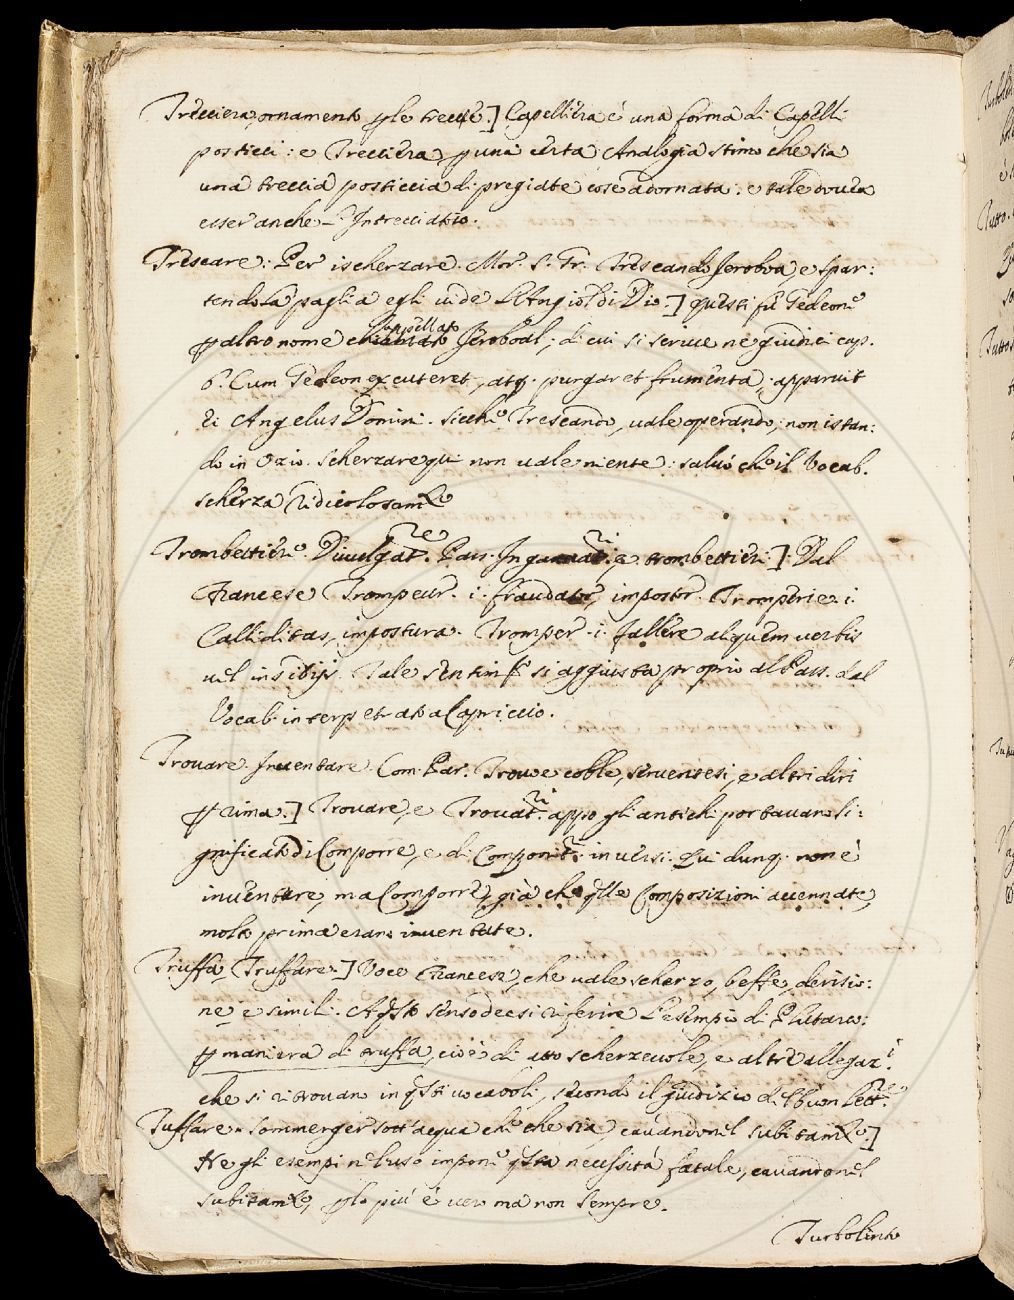 Trecciera, ornamento p le treccie.] Capelliera è una forma di Capelli
posticci: e Trecciera p una certa Analogia stimo che sia
una treccia posticcia di pregiate cose adornata: e tale dovea
esser anche - Intrecciatio.
Trescare: Per ischerzare. Mor. S. Gr. Trescando Jeroboa, e spar:
tendo la paglia egli vide L'Angiol di Dio.] questi fù Gedeone
p altro nome appellato Jeroboal; di cui si scrive ne giudici cap.
6. Cum Gedeon excuteret, atq. purgaret frumenta, apparuit
ei Angelus Domini. Sicchè Trescando, vale operando, non istan:
do in Ozio. Scherzare qui non vale niente: salvo che il Vocab.
scherza ridicolosamte
Trombettiere. Divulgatre. Pass. Ingannatri, e trombettieri.] Dal
Francese Trompeur. i. fraudator, impostor. Tromperie. i.
Calliditas, impostura. Tromper. i. fallere aliquem verbis
vel insidijs. Tale sentimto si aggiusta proprio al Pass. dal
Vocab. interpetrato a Capriccio.
Trovare. Inventare. Com. Par. Trovve cobble, serventesi, e altri diri
p rima.] Trovare, e Trovatri appo gli antichi portavano si:
gnificato di Comporre, e di Componitri in versi. Qui dunq. non è
inventare, ma Comporre, già che qlle Composizioni accennate,
molto prima erano inventate.
Truffa, Truffare.] Voce Francese, che vale scherzo, beffe, derisio:
ne e simili. A qsto senso deesi riferire l'esempio di Plutarco:
p maniera di truffa, cioè di atto scherzevole, e altre allegazi
che si ritrovano in qsti vocaboli, secondo il giudizio del buon Lettre.
Tuffare. Sommerger sott'acqua che che sia, cavandonel subitamte.]
Ne gli esempi nel'uso impone qsta necessità fatale, cavandonel
subitamte, plo più è vero ma non sempre.
Turbolento